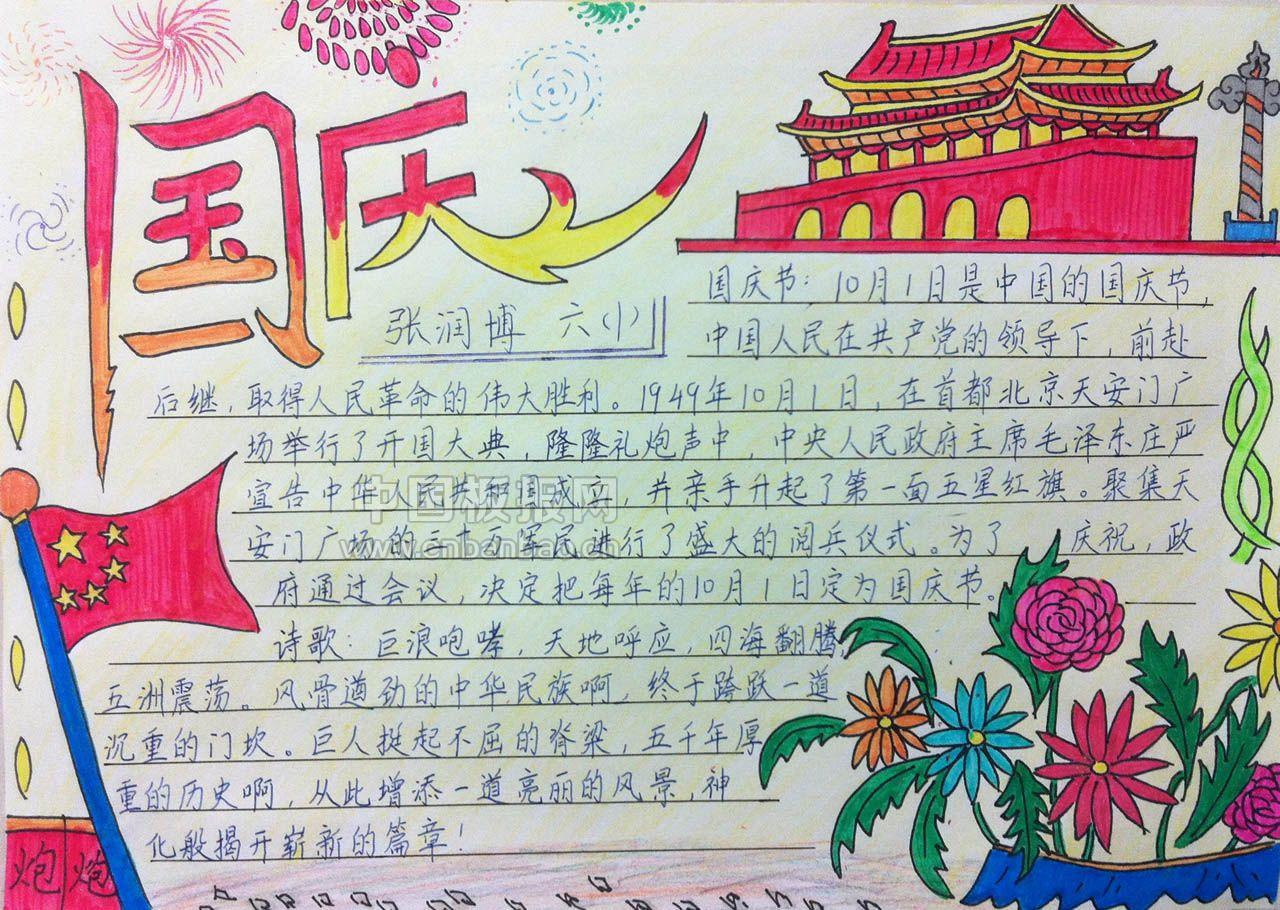 国庆
张润博 六(小)
国庆节：10月1日是中国的国庆节，
中国人民在共产党的领导下，前赴
后继，取得人民革命的伟大胜利。1949年10月1日，在首都北京天安门广
场举行了开国大典，隆隆礼炮声中，中央人民政府主席毛泽东庄严
宣告中华人民共和国成立，并亲手升起了第一面五星红旗。聚集天
安门广场的三十万军民进行了盛大的阅兵仪式。为了 庆祝，政
府通过会议，决定把每年的10月1日定为国庆节。
诗歌：巨浪咆哮，天地呼应，四海翻腾，
五洲震荡。风骨遒劲的中华民族啊 终于跨跃一道
沉重的门坎。巨人挺起不屈的脊梁，五千年厚
重的历史啊，从此增添一道亮丽的风景，神
化般揭开崭新的篇章！
炮 炮
中国板报网
www.cnbanbao.cn